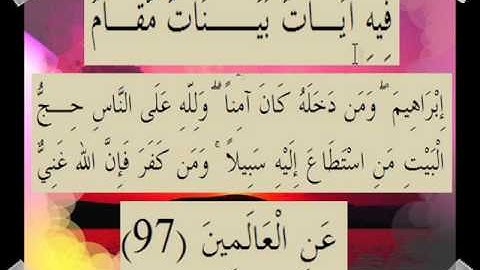 فِيهِ آيَـــاتٌ بَيِّـــنَـاتٌ مَّقَـــامُ
إِبْرَاهِيمَ ۖ وَمَن دَخَلَهُ كَانَ آمِنًا ۗ وَلِلَّهِ عَلَى النَّاسِ حِـــجُّ
الْبَيْتِ مَنِ اسْتَطَاعَ إِلَيْهِ سَبِيلاً ۚ وَمَن كَفَرَ فَإِنَّ الله غَنِيٌّ
عَنِ الْعَالَمِينَ (97)